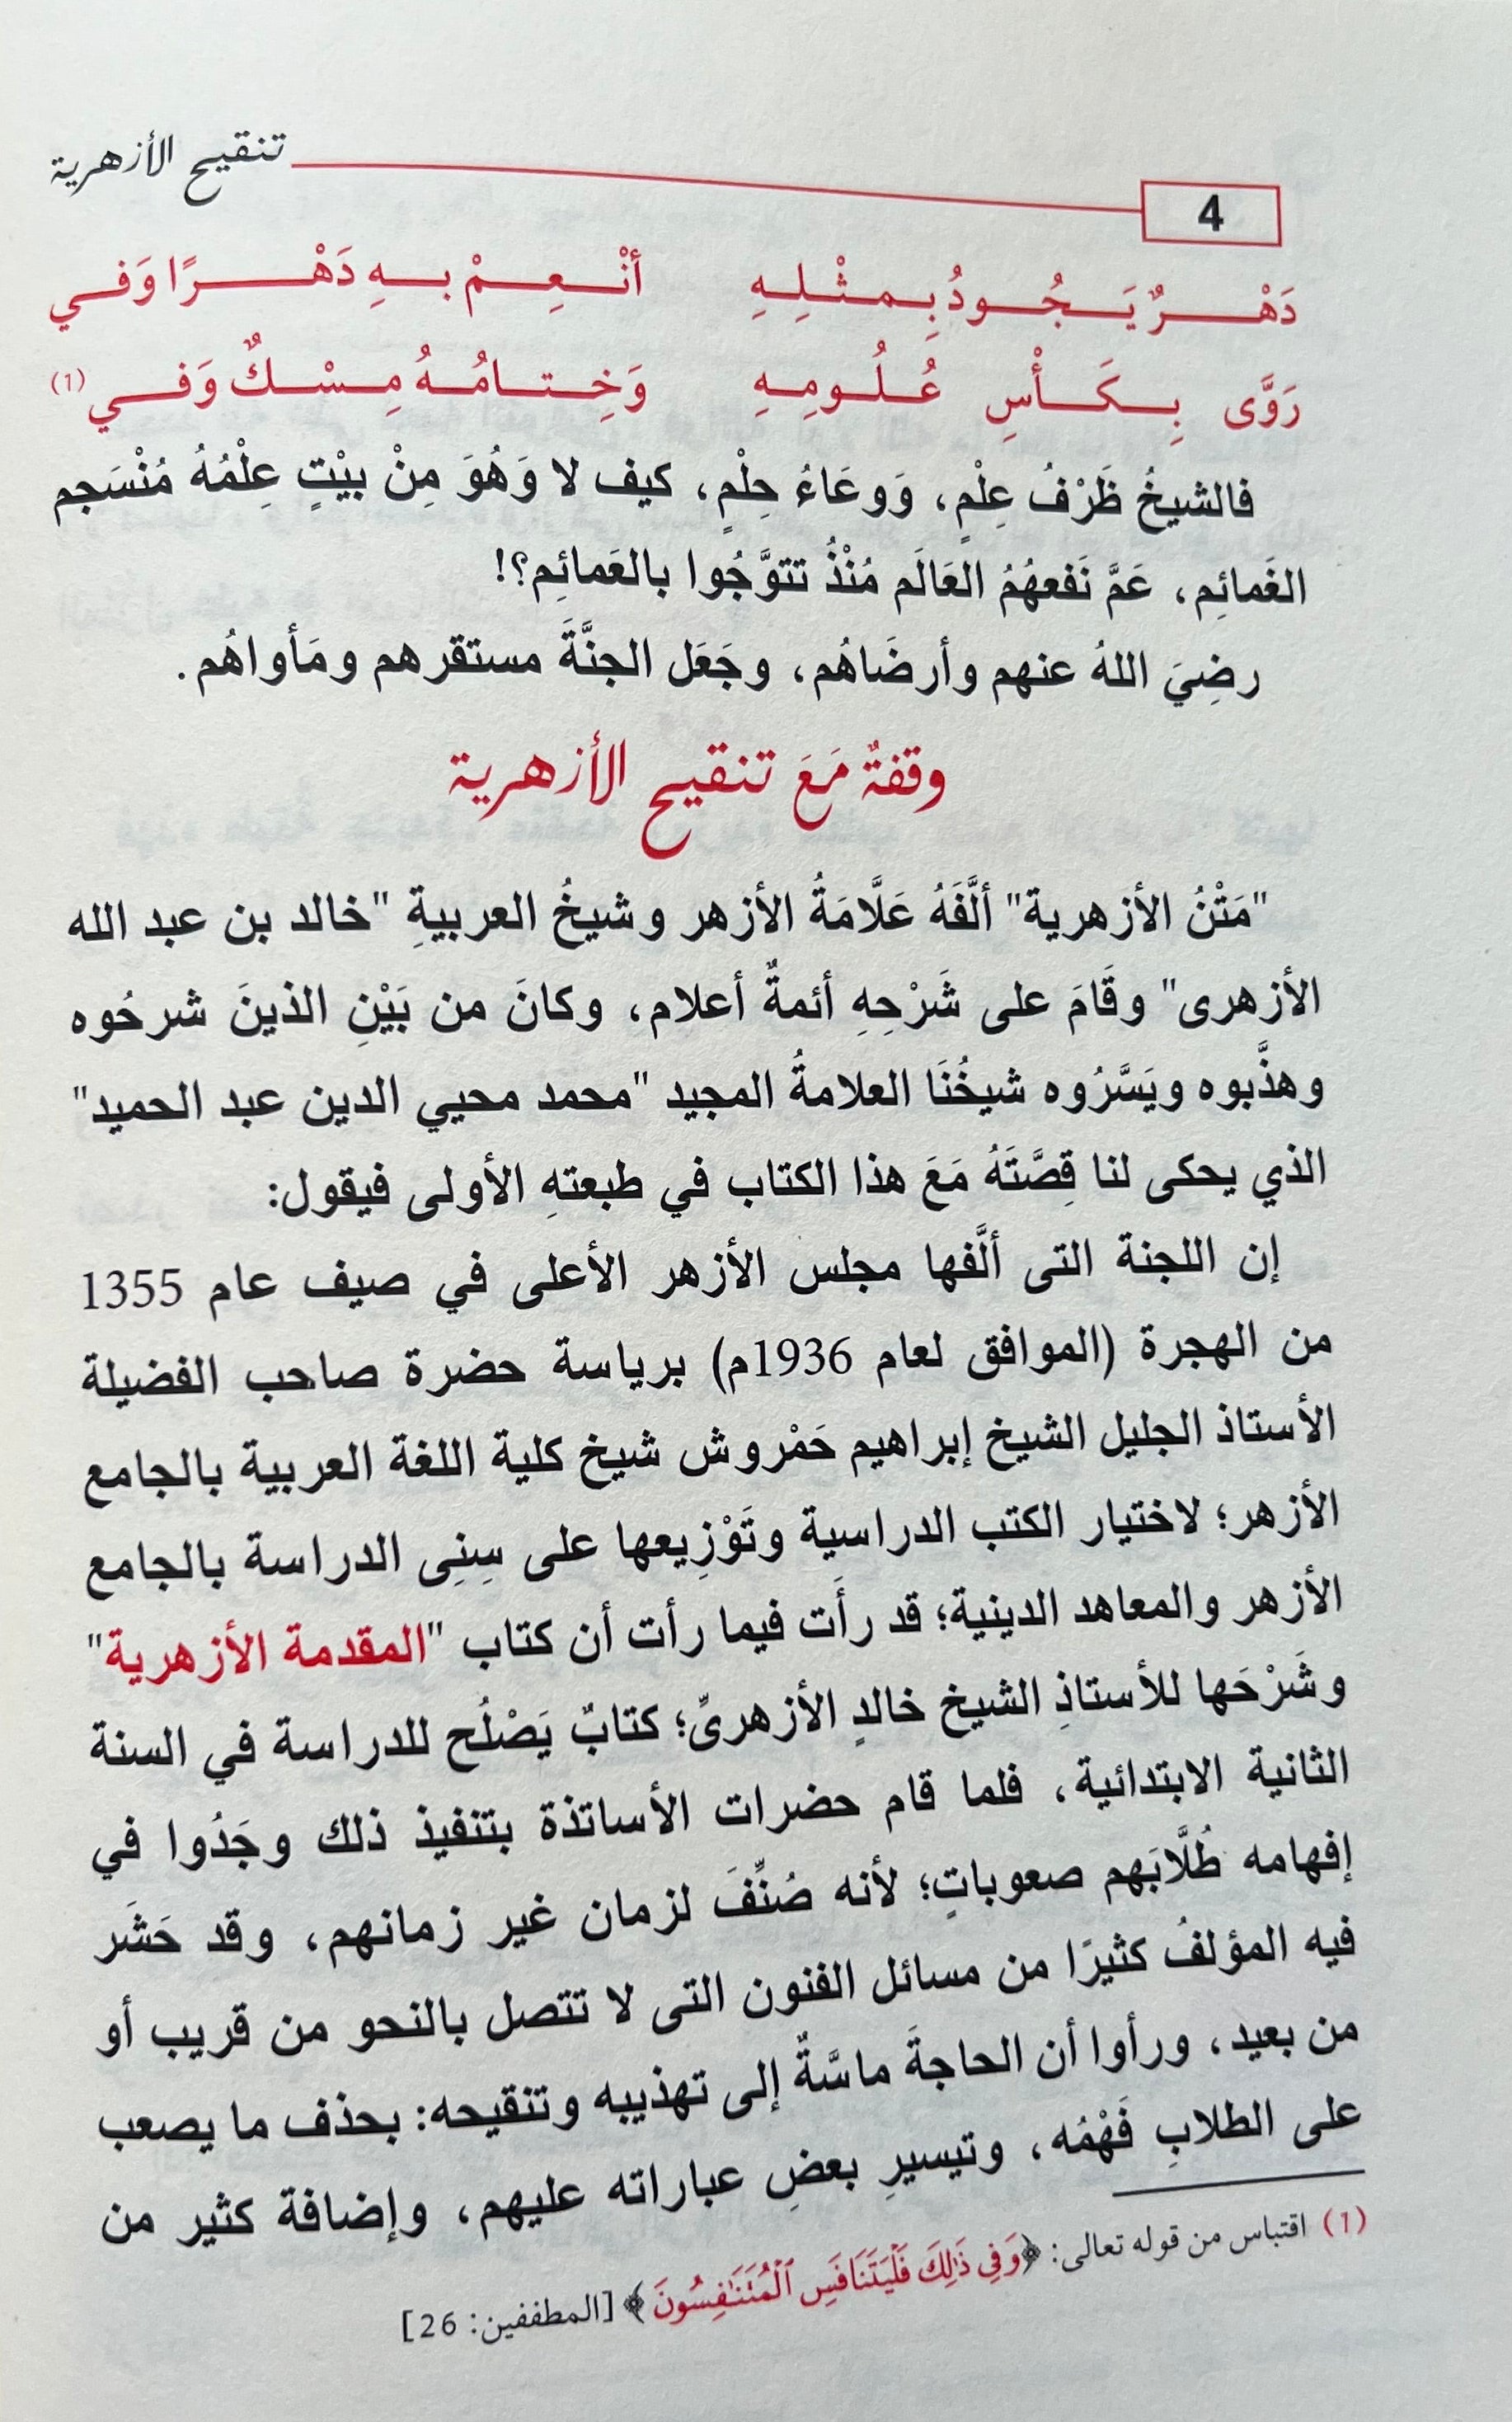 تنقيح الأزهرية
4
دَهْرٌ يَجُودُ بِمثْلِهِ أنْعِمْ بهِ دَهْرًا وَفي
رَوَّى بِكَأْسِ عُلُومِهِ وَخِتامُهُ مِسْكٌ وَفي (1)
فالشيخُ ظَرْفُ عِلْمٍ، وَوعَاءُ حِلْمٍ، كيف لا وَهُوَ مِنْ بيْتٍ عِلْمُهُ مُنْسَجم
الغَمائِم، عَمَّ نَفعهُمُ العَالَم مُنْذُ تتوَّجُوا بالعَمائِم؟!
رضِيَ اللهُ عنهم وأرضَاهُم، وجَعَل الجنَّةَ مستقرهم ومَأواهُم.
وقفةٌ مَعَ تنقيح الأزهرية
"مَتْنُ الأزهرية" ألَّفَهُ عَلَّامَةُ الأزهر وشيخُ العربيةِ "خالد بن عبد الله
الأزهرى" وقَامَ على شَرْحِهِ أئمةٌ أعلام، وكانَ من بَيْنِ الذينَ شرحُوه
وهذَّبوه ويَسَّرُوه شيخُنَا العلامةُ المجيد "محمد محيي الدين عبد الحميد"
الذي يحكى لنا قِصَّتَهُ مَعَ هذا الكتاب في طبعتهِ الأولى فيقول:
إن اللجنة التى ألَّفها مجلس الأزهر الأعلى في صيف عام 1355
من الهجرة (الموافق لعام 1936م) برياسة حضرة صاحب الفضيلة
الأستاذ الجليل الشيخ إبراهيم حَمْروش شيخ كلية اللغة العربية بالجامع
الأزهر؛ لاختيار الكتب الدراسية وتَوْزِيعها على سِنِى الدراسة بالجامع
الأزهر والمعاهد الدينية؛ قد رأَت فيما رأت أن كتاب "المقدمة الأزهرية"
وشَرْحَها للأستاذِ الشيخ خالدٍ الأزهرىِّ؛ كتابٌ يَصْلُح للدراسة في السنة
الثانية الابتدائية، فلما قام حضرات الأساتذة بتنفيذ ذلك وجَدُوا في
إفهامه طُلَّابَهم صعوباتٍ؛ لأنه صُنِّفَ لزمان غير زمانهم، وقد حَشَر
فيه المؤلفُ كثيرًا من مسائل الفنون التى لا تتصل بالنحو من قريب أو
من بعيد، ورأوا أن الحاجةَ ماسَّةٌ إلى تهذيبه وتنقيحه: بحذف ما يصعب
على الطلابِ فَهْمُه، وتيسيرِ بعضِ عباراته عليهم، وإضافة كثير من
(1) اقتباس من قوله تعالى: ﴿وَفِي ذَٰلِكَ فَلْيَتَنَافَسِ ٱلْمُتَنَٰفِسُونَ﴾ [المطففين: 26]